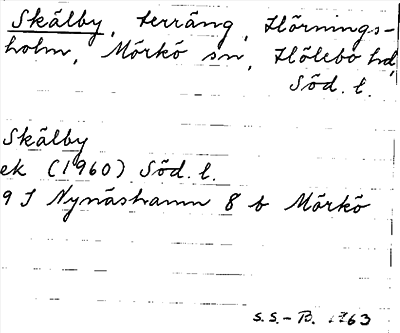 Skälby, terräng, Hörnings-
holm, Mörkö sn, Hölebo hd,
Söd. l.
Skälby
ek (1960) Söd. l.
9 I Nynäshamn 8 b Mörkö
S.S.-B. 1963